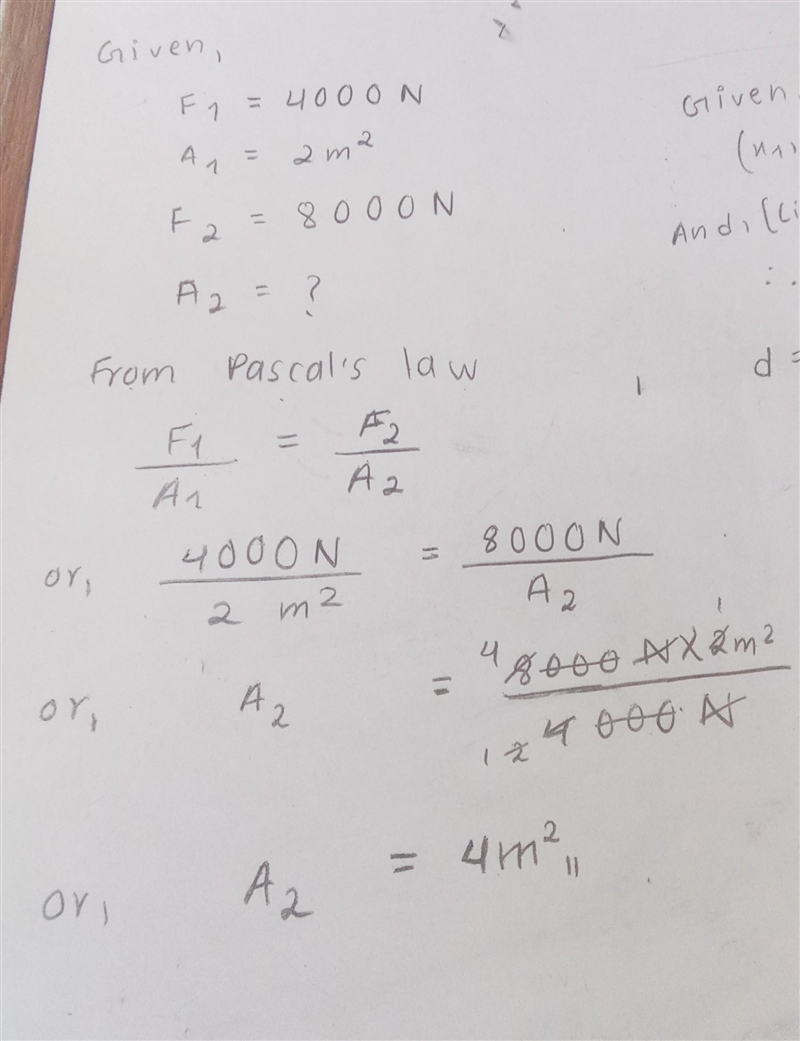 Given,
F1 = 4000 N
A1 = 2m²
F2 = 8000 N
A2 = ?
From Pascal's law
F1/A1 = F2/A2
or, 4000N/2 m² = 8000N/A2
or, A2 = 8000 N X 2m²/4000 N
4 1
1 2
or, A2 = 4m²
Given,
(x1,
And,
∴
d =